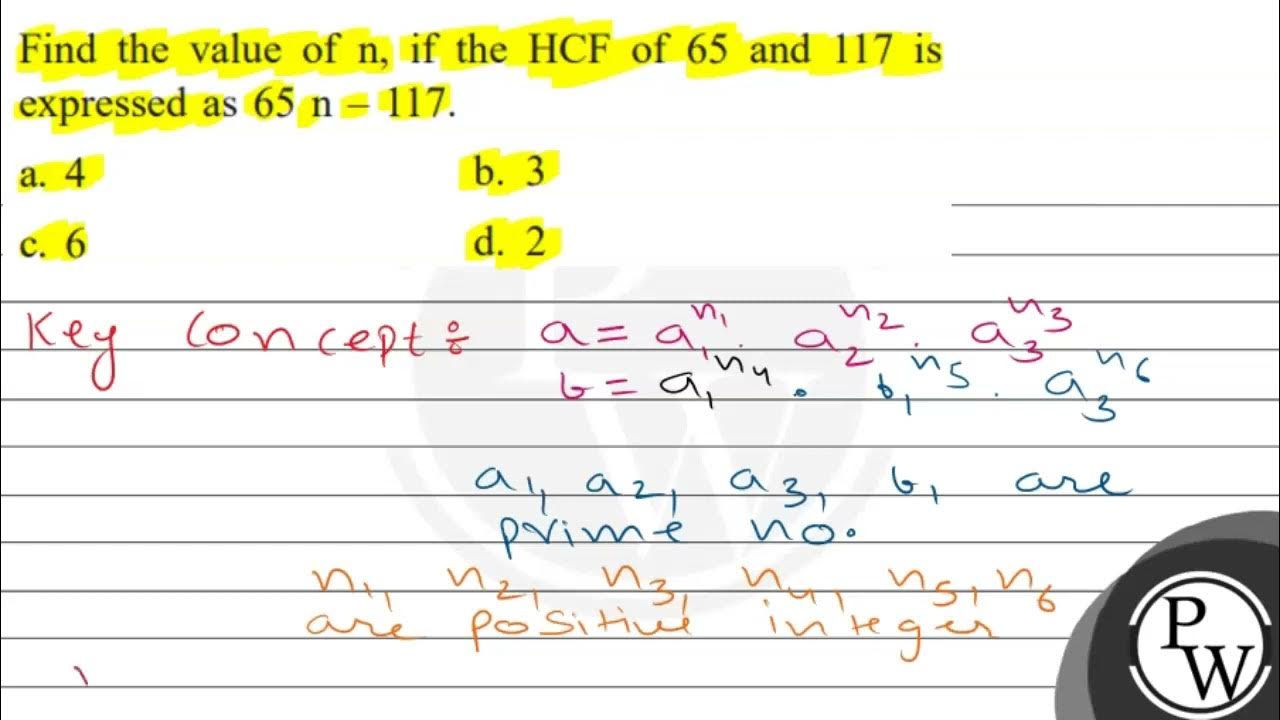 Find the value of n, if the HCF of 65 and 117 is
expressed as 65 n – 117.
a. 4 b. 3
c. 6 d. 2
Key Concept ÷ a = a₁ⁿ¹ · a₂ⁿ² · a₃ⁿ³
b = a₁ⁿ⁴ · b₁ⁿ⁵ · a₃ⁿ⁶
a₁, a₂, a₃, b₁ are
prime no.
n₁, n₂, n₃, n₄, n₅, n₆
are positive integer
PW